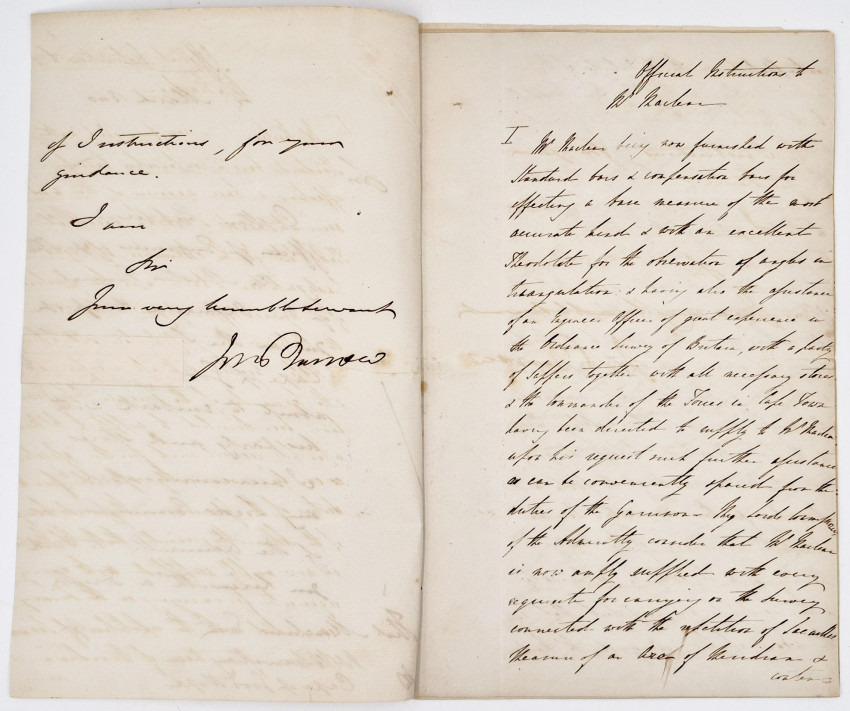 of Instructions, for your
guidance.
I am
Sir
Your very humble Servant
John Barrow
Official Instructions to
Mr Maclear
I Mr Maclear being now furnished with
Standard bars & compensation bars for
effecting a base measure of the most
accurate kind & with an excellent
Theodolite for the observation of angles in
triangulation & having also the assistance
of an Engineer Officer of great experience in
the Ordnance Survey of Britain, with a party
of Sappers together with all necessary stores
& the Commander of the Forces in Cape Town
having been directed to supply to Mr Maclear
upon his request such further assistance
as can be conveniently spared from the
duties of the Garrison – My Lords Commissrs
of the Admiralty consider that Mr Maclear
is now amply supplied with every
requisite for carrying on the Survey
connected with the repetition of Lacaille's
Measure of an Arc of Meridian &